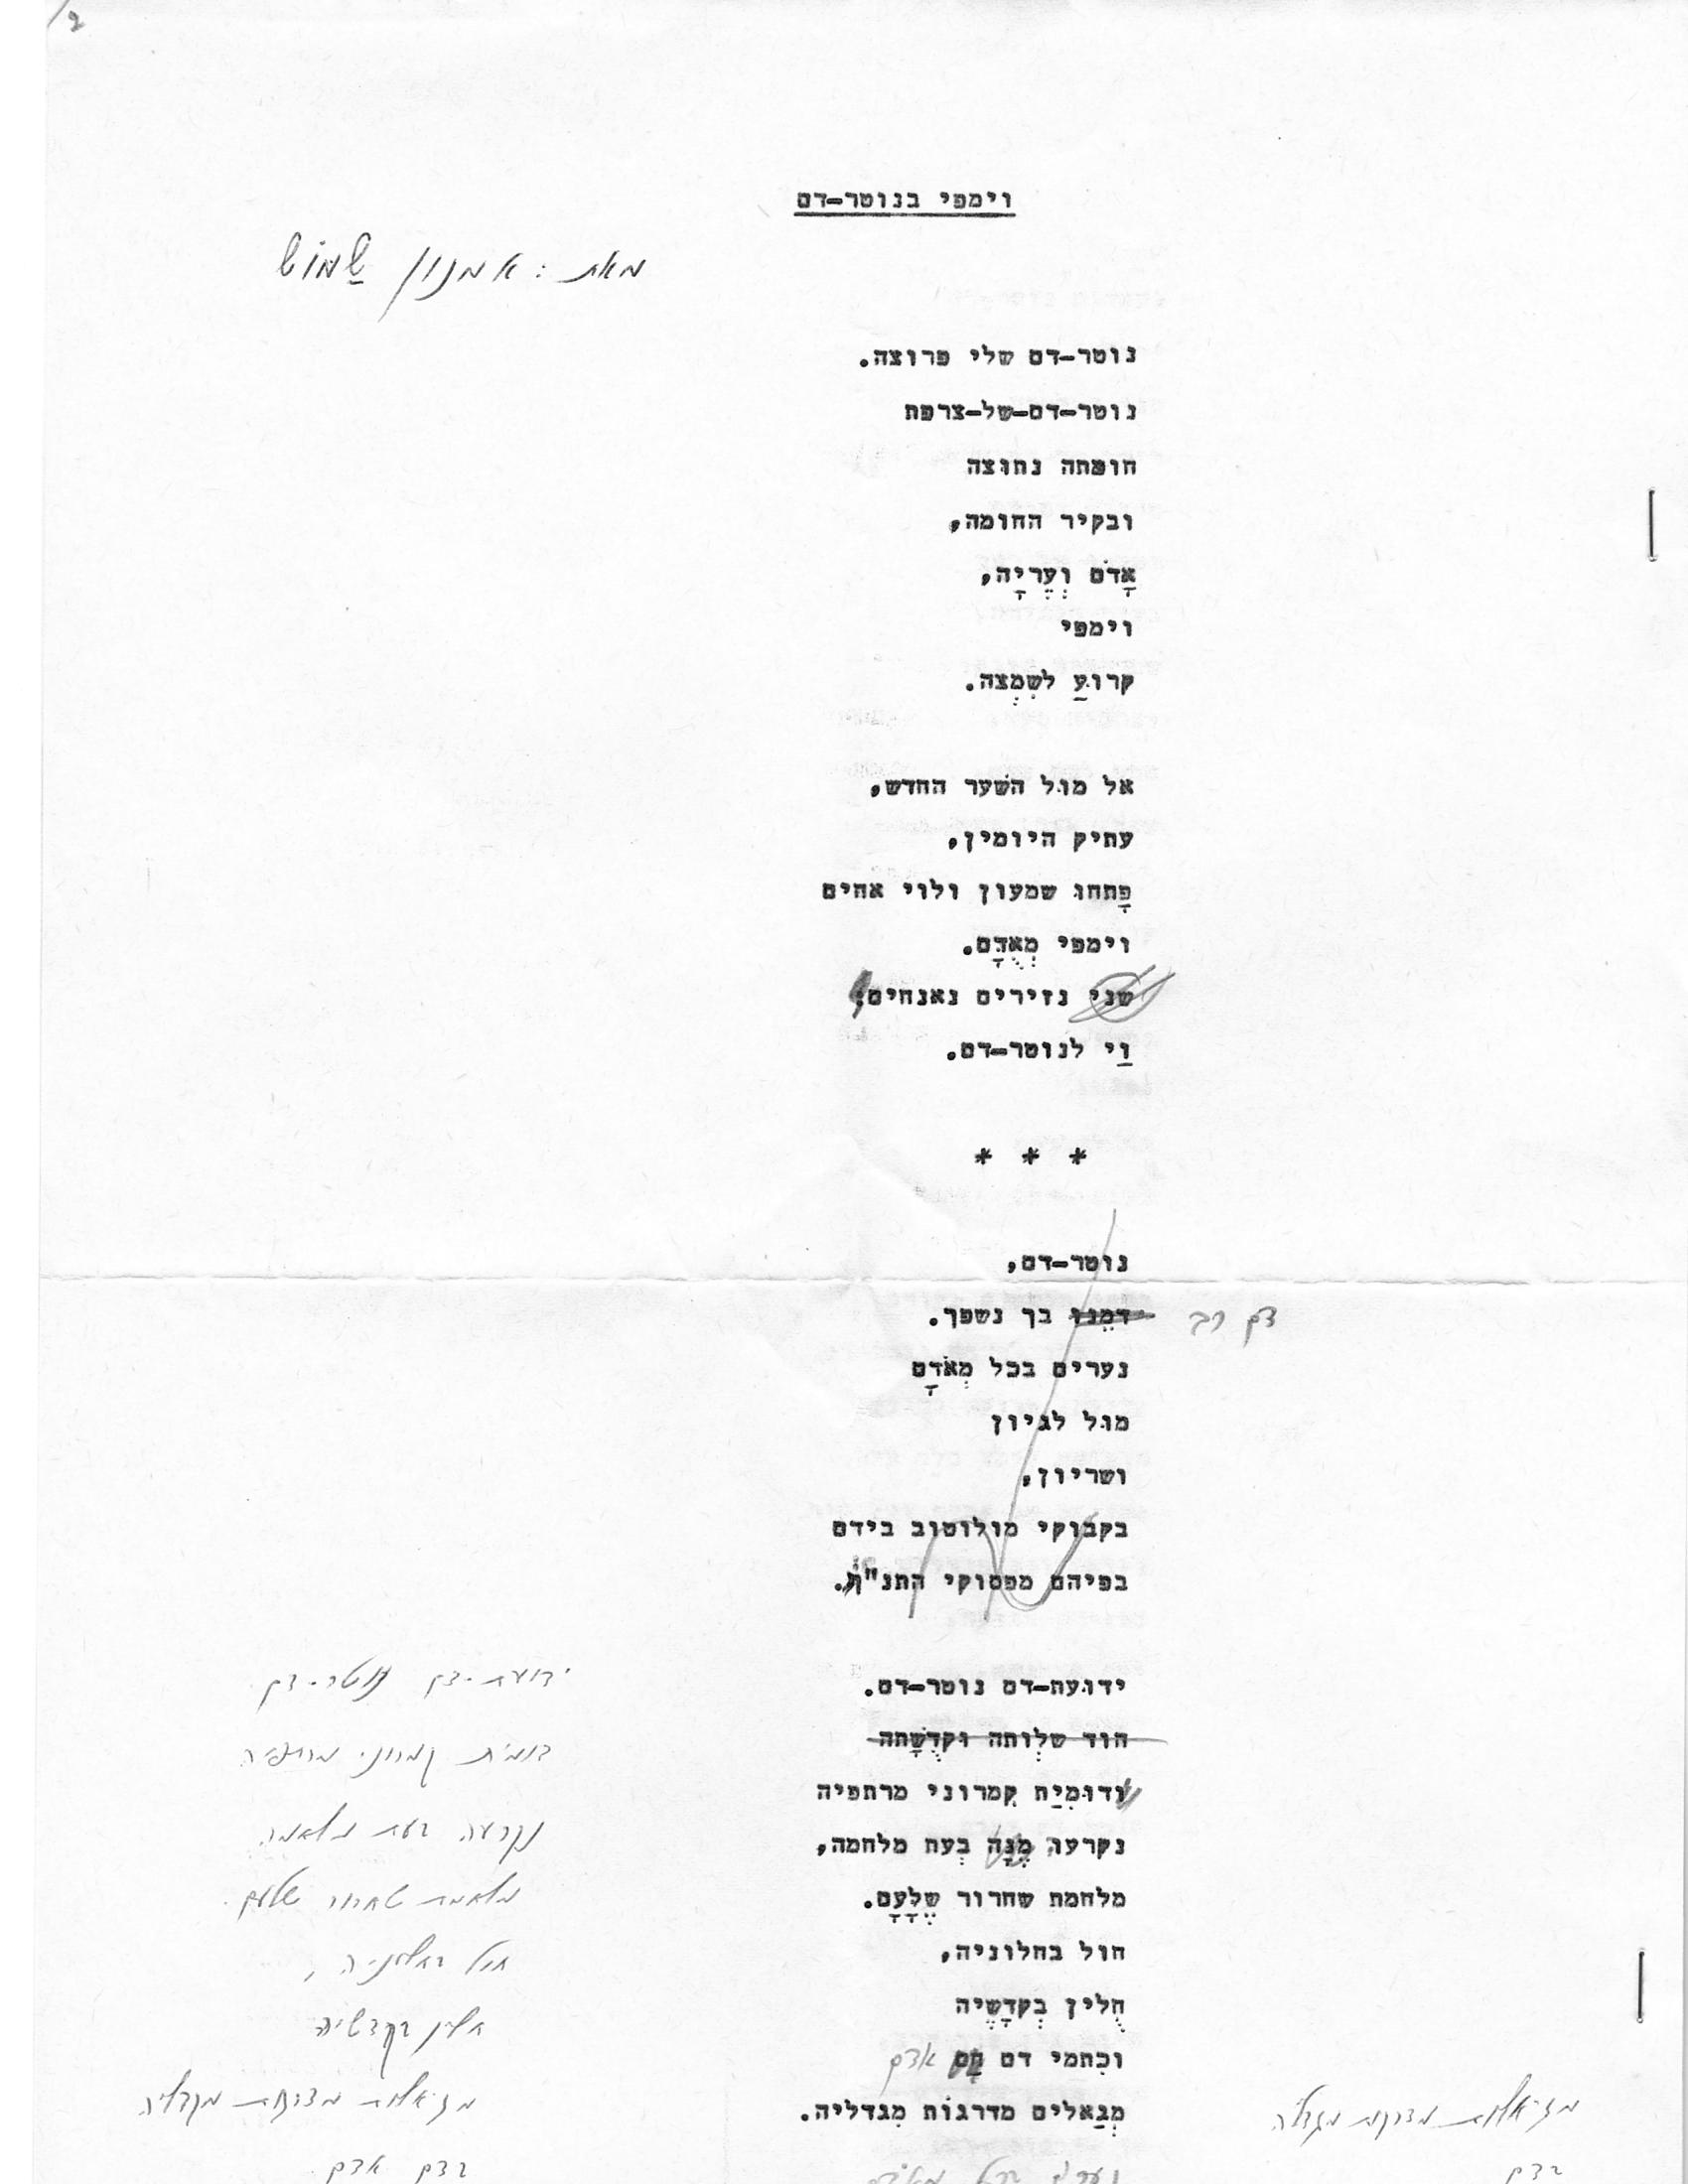 2/
וימפי בנוטר-דם
מאת: אמנון שַׁמוֹש
נוטר-דם שלי פרוצה.
נוטר-דם-של-צרפת
חומתה נחוצה
ובקיר החומה,
אָדֹם וְעֶרְיָה,
וימפי
קרוּעַ לשִׁמְצה.
אל מוּל השער החדש,
עתיק היומין,
פָּתחוּ שמעון ולוי אחים
וימפי מְאֻדָּם.
שני נזירים נאנחים:
וַי לנוטר-דם.
* * *
נוטר-דם,
דמֵנוּ בך נשפך.
דם רב
נערים בכל מְאֹדָם
מוּל לגיון
ושריון,
בקבוקי מולוטוב בידם
בפיהם מפסוקי התנ"ך.
ידוּעת-דם נוטר-דם.
הוד שלְותה וּקדֻשָּׁתה
ודוּמִיַת קמרוני מרתפיה
נקרעו מֶנָּה בְּעת מלחמה,
מלחמת שחרור שֶׁלָעָם.
חול בחלוניה,
חֻלין בְּקדָשֶׁיה
וכִתמי דם חַם אדם
מְגַאלים מדרגוֹת מִגדליה.
ידועת-דם נוטר-דם.
דומית קמרוני מרתפיה
נקרעה בעת מלחמה
מלחמת שחרור שלעם.
חול בחלוניה,
חולין בקדשיה
מגאלות מדרגות מגדליה
בדם אדם.
מגאלות מדרגות מגדליה
בדם